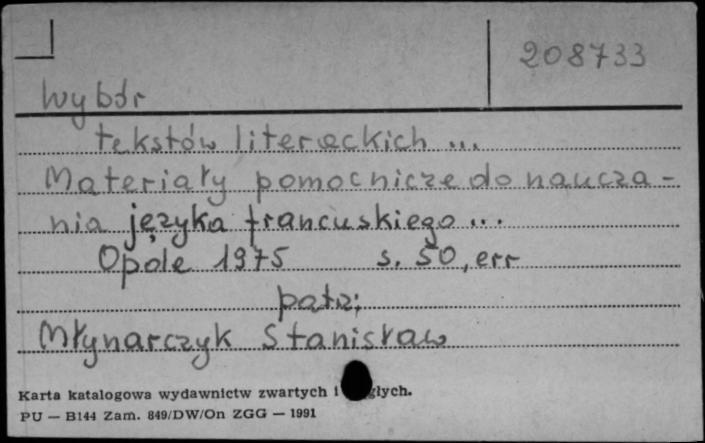 208733
Wybór
tekstów literackich ...
Materiały pomocnicze do naucza-
nia języka francuskiego ...
Opole 1975 s. 50, err
patrz:
Młynarczyk Stanisław
Karta katalogowa wydawnictw zwartych i
PU — B144 Zam. 849/DW/On ZGG — 1991